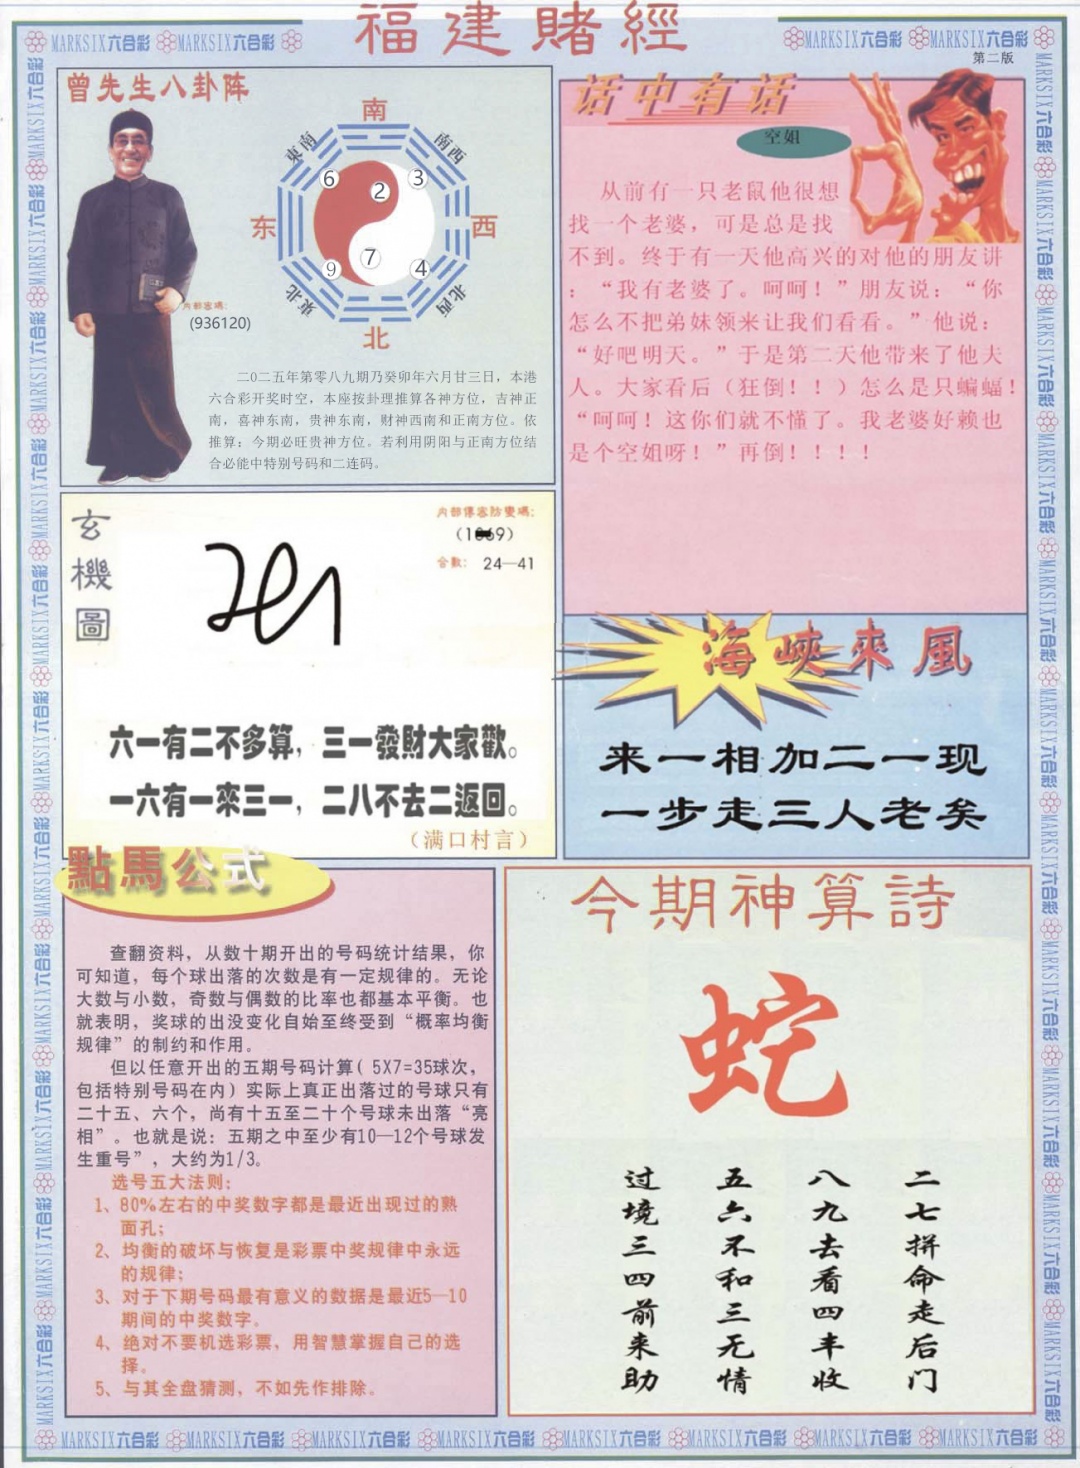 福建賭經
MARKSIX六合彩 MARKSIX六合彩
MARKSIX六合彩 MARKSIX六合彩
第二版
曾先生八卦阵
南
東南
南西
6
2
3
东
西
9
7
4
東北
北西
北
内部密碼：
(936120)
二0二五年第零八九期乃癸卯年六月廿三日，本港
六合彩开奖时空，本座按卦理推算各神方位，吉神正
南，喜神东南，贵神东南，财神西南和正南方位。依
推算：今期必旺贵神方位。若利用阴阳与正南方位结
合必能中特别号码和二连码。
话中有话
空姐
从前有一只老鼠他很想
找一个老婆，可是总是找
不到。终于有一天他高兴的对他的朋友讲
：“我有老婆了。呵呵！”朋友说：“你
怎么不把弟妹领来让我们看看。”他说：
“好吧明天。”于是第二天他带来了他夫
人。大家看后（狂倒！！）怎么是只蝙蝠！
“呵呵！这你们就不懂了。我老婆好赖也
是个空姐呀！”再倒！！！！
玄機圖
内部傳密防變碼：
合數： 24—41
六一有二不多算，三一發財大家歡。
一六有一來三一，二八不去二返回。
（满口村言）
海峽來風
来一相加二一现
一步走三人老矣
點馬公式
查翻资料，从数十期开出的号码统计结果，你
可知道，每个球出落的次数是有一定规律的。无论
大数与小数，奇数与偶数的比率也都基本平衡。也
就表明，奖球的出没变化自始至终受到“概率均衡
规律”的制约和作用。
但以任意开出的五期号码计算（5X7=35球次，
包括特别号码在内）实际上真正出落过的号球只有
二十五、六个，尚有十五至二十个号球未出落“亮
相”。也就是说：五期之中至少有10—12个号球发
生重号”，大约为1/3。
选号五大法则：
1、80%左右的中奖数字都是最近出现过的熟
面孔；
2、均衡的破坏与恢复是彩票中奖规律中永远
的规律；
3、对于下期号码最有意义的数据是最近5—10
期间的中奖数字。
4、绝对不要机选彩票，用智慧掌握自己的选
择。
5、与其全盘猜测，不如先作排除。
今期神算詩
蛇
二七拼命走后门
八九去看四丰收
五六不和三无情
过境三四前来助
MARKSIX六合彩 MARKSIX六合彩 MARKSIX六合彩 MARKSIX六合彩 MARKSIX六合彩 MARKSIX六合彩 MARKSIX六合彩 MARKSIX六合彩